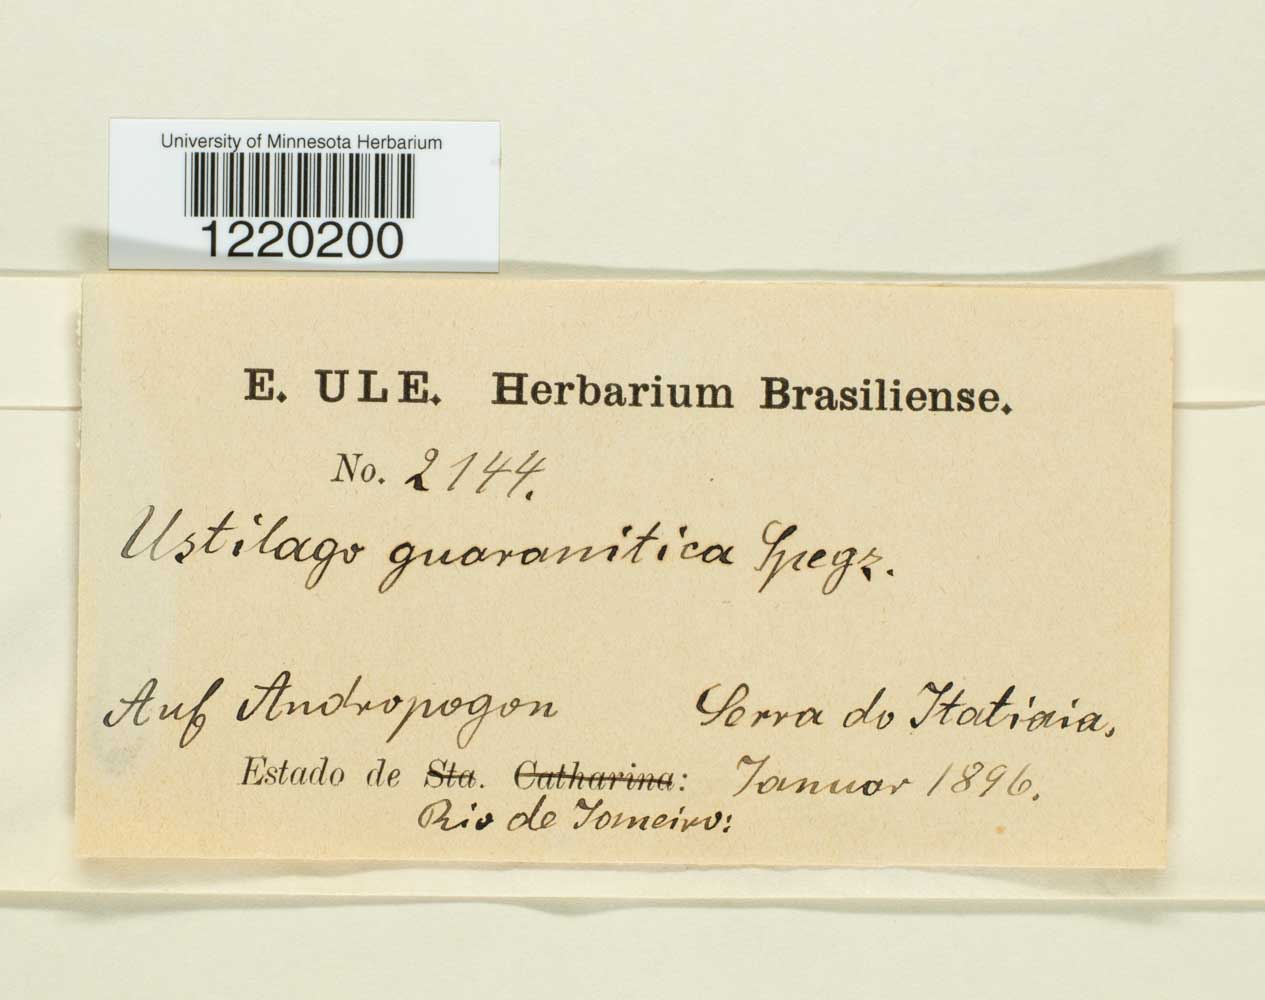 University of Minnesota Herbarium
1220200
E. ULE. Herbarium Brasiliense.
No. 2144.
Ustilago guaranitica Spegz.
Auf Andropogon Serra do Itatiaia,
Estado de Sta. Catharina: Januar 1896.
Rio de Janeiro: